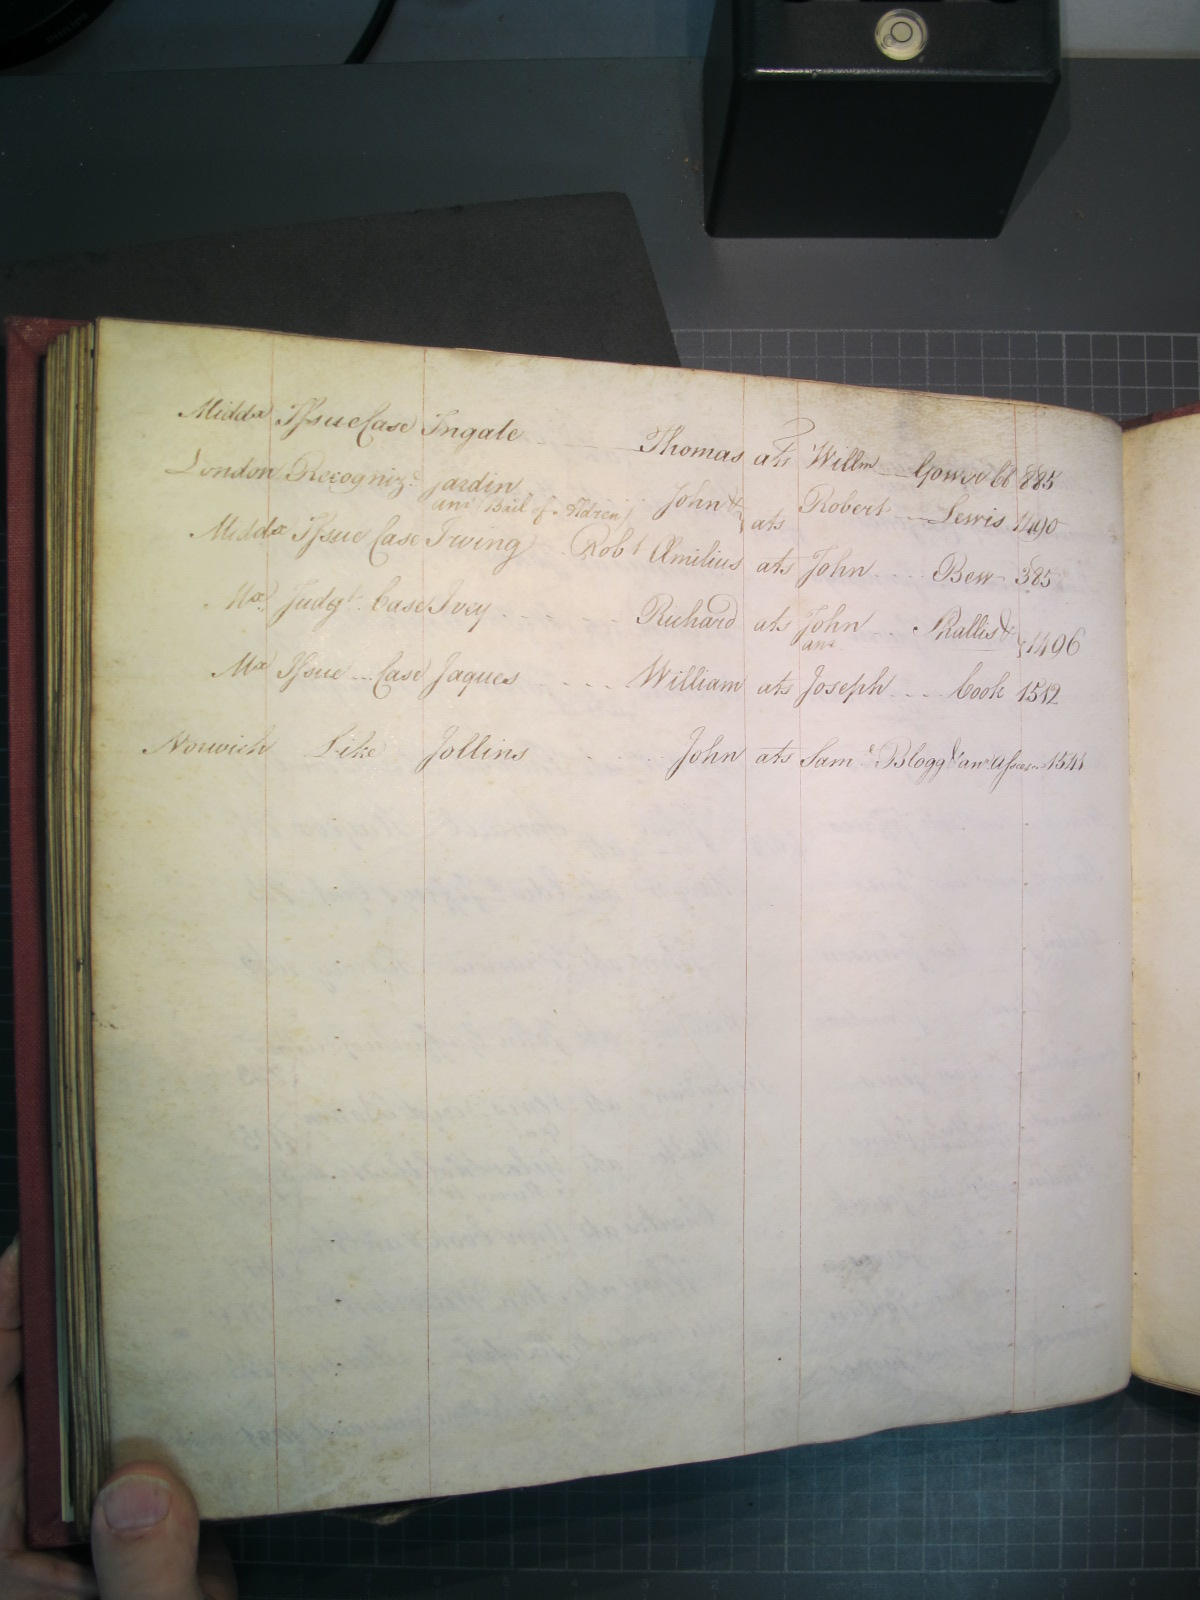 Middx Issue Case Ingale Thomas ats Willm Gower 885
London Recogniz.ce Jardin John & ats Robert Lewis 1490
anr (Bail of Adrien)
Middx Issue Case Irving Robt Æmilius ats John Bew 385
Mx Judgt. Case Ivey Richard ats John Phallis & 1496
anr
Mx Issue Case Jaques William ats Joseph Cook 1512
Norwich Like Jollins John ats Sam.l Blogg & anr 1541